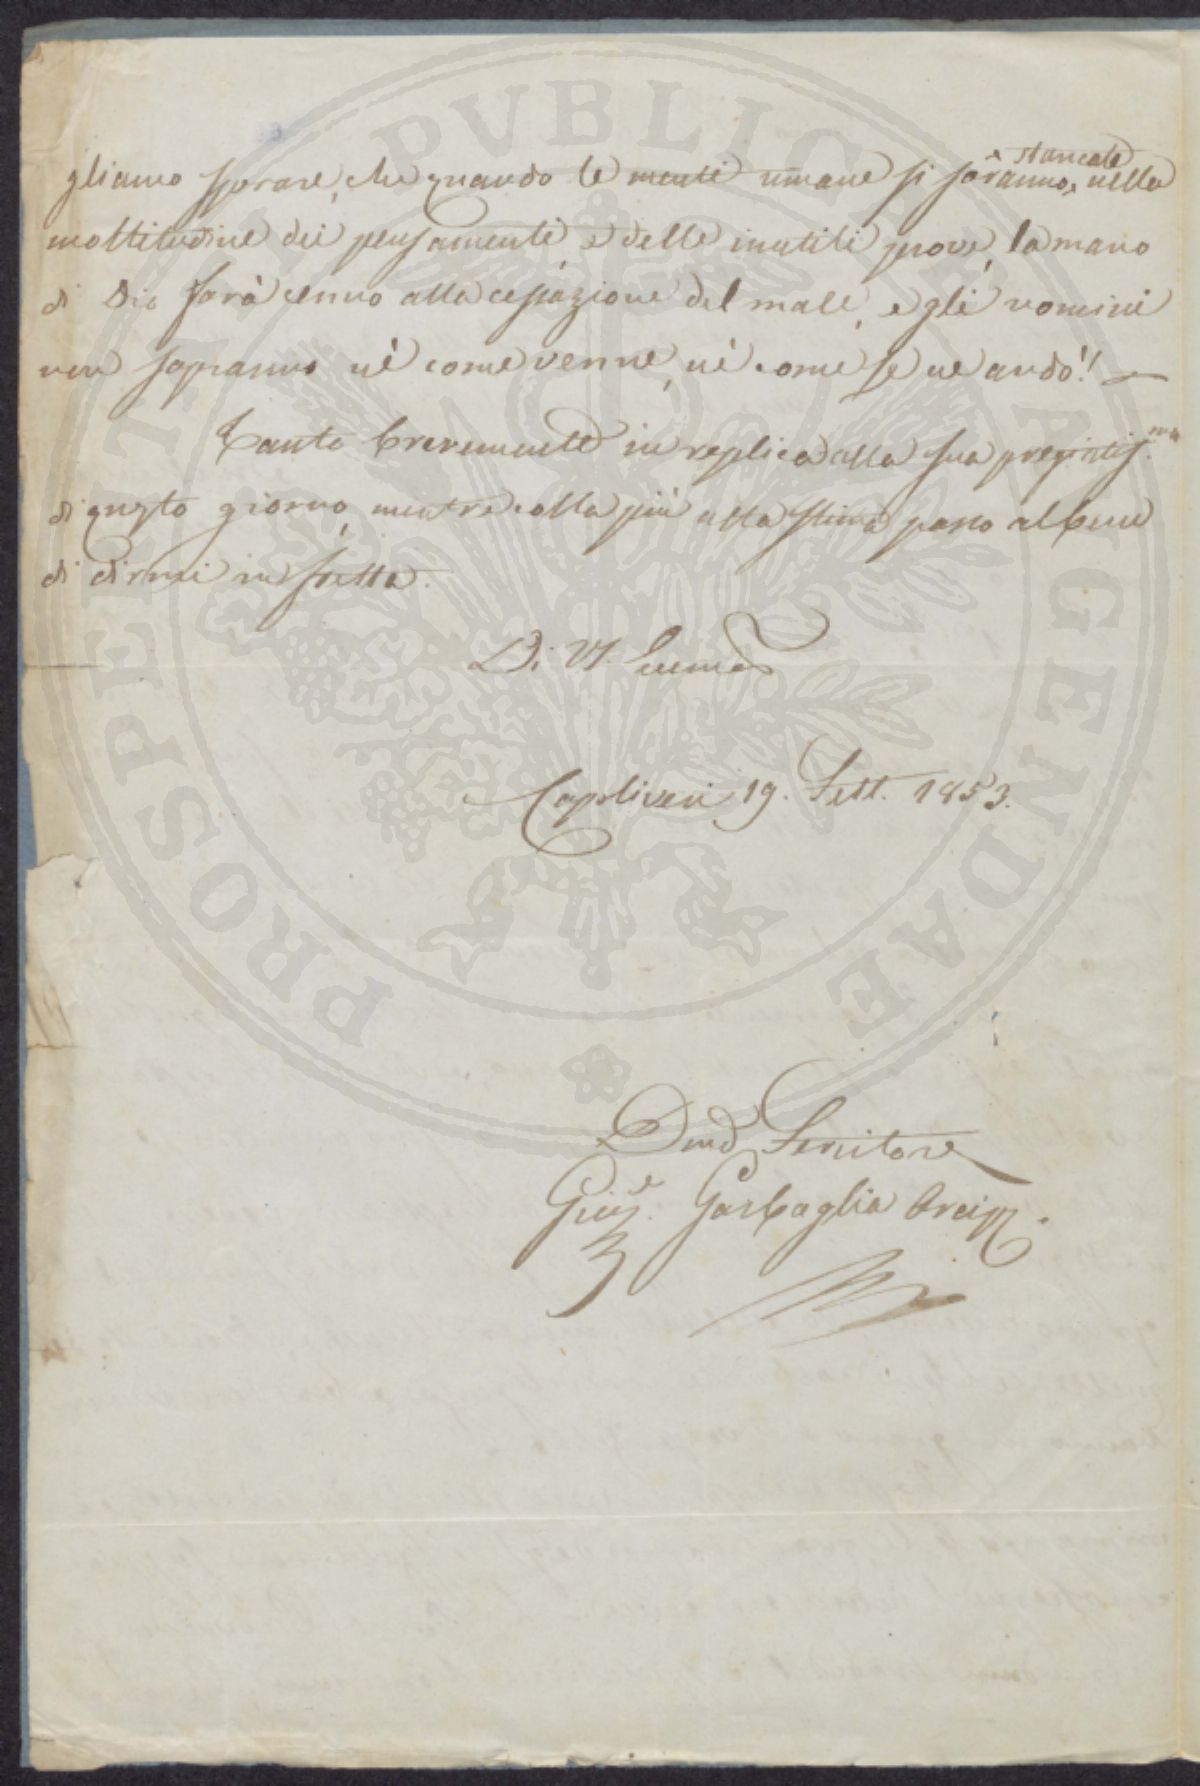 gliamo sperare, che quando le menti umane si saranno stancate nella
moltitudine dei pensamenti, e delle inutili prove, la mano
di Dio farà cenno alla cessazione del male, e gli uomini
non sapranno nè come venne, nè come se ne andò!! —
Tanto brevemente in replica alla sua pregiatis.ma
di questo giorno, mentre colla più alta stima passo al bene
di dirmi in fretta.
Di VS. Illma
Capoliveri 19. Sett. 1853.
Devo Servitore
Gius.e Garbaglia Arcip.
PROSPERITATI PVBLICAE AVGENDAE